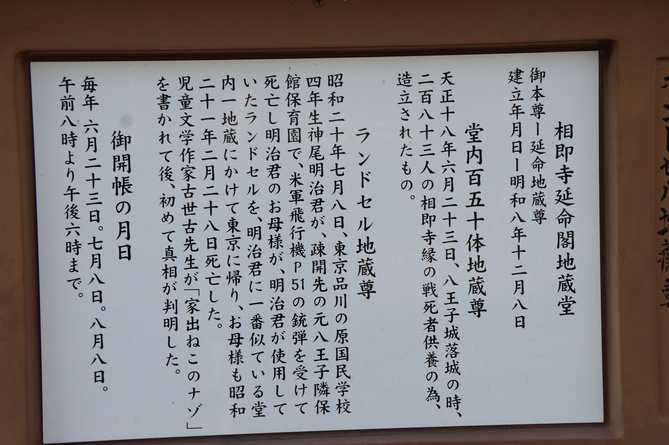 相即寺延命閣地蔵堂
御本尊ー延命地蔵尊
建立年月日ー明和八年十二月八日
堂内百五十体地蔵尊
天正十八年六月二十三日、八王子城落城の時、
二百八十三人の相即寺縁の戦死者供養の為、
造立されたもの。
ランドセル地蔵尊
昭和二十年七月八日、東京品川の原国民学校
四年生神尾明治君が、疎開先の元八王子隣保
館保育園で、米軍飛行機P51の銃弾を受けて
死亡し明治君のお母様が、明治君が使用して
いたランドセルを、明治君に一番似ている堂
内一地蔵にかけて東京に帰り、お母様も昭和
二十一年二月二十八日死亡した。
児童文学作家古世古先生が「家出ねこのナゾ」
を書かれて後、初めて真相が判明した。
御開帳の月日
毎年 六月二十三日。七月八日。八月八日。
午前八時より午後六時まで。